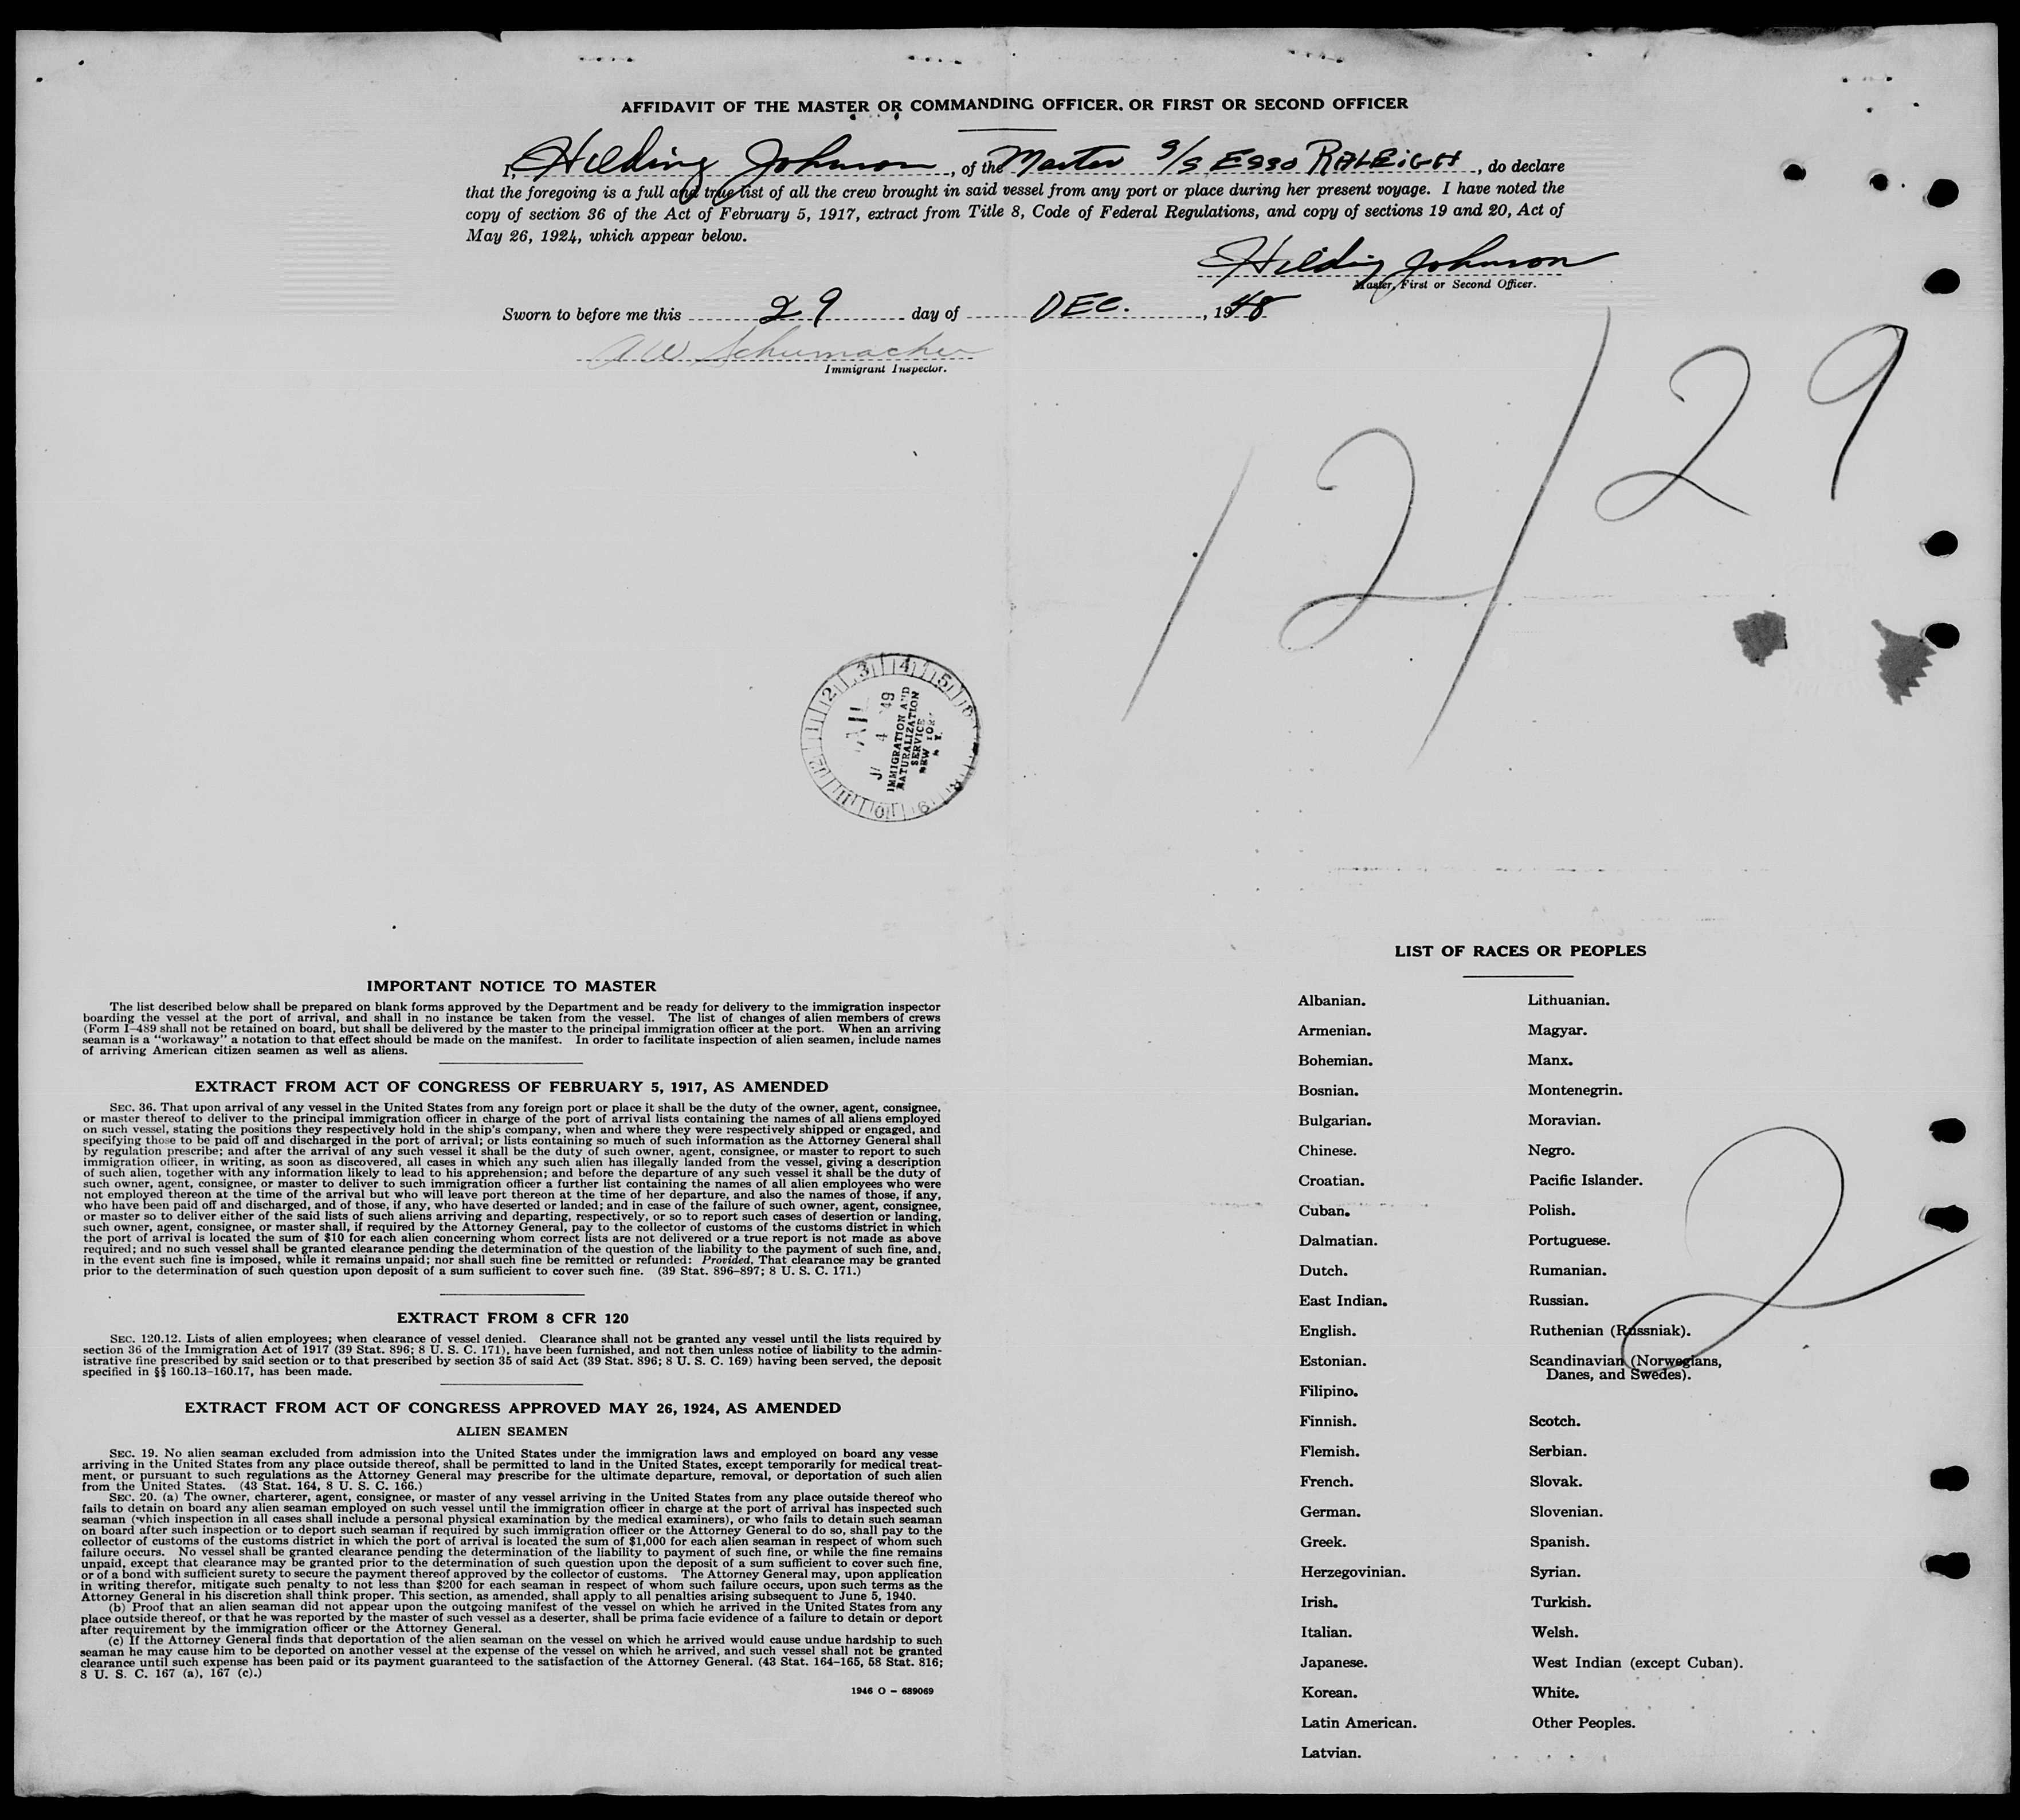 AFFIDAVIT OF THE MASTER OR COMMANDING OFFICER. OR FIRST OR SECOND OFFICER
I, Hilding Johnson, of the Master S/S Esso RALEIGH, do declare
that the foregoing is a full and true list of all the crew brought in said vessel from any port or place during her present voyage. I have noted the
copy of section 36 of the Act of February 5, 1917, extract from Title 8, Code of Federal Regulations, and copy of sections 19 and 20, Act of
May 26, 1924, which appear below.
Hilding Johnson
Master, First or Second Officer.
Sworn to before me this 29 day of DEC., 1948
A W Schumacher
Immigrant Inspector.
12/29
1 2 3 4 5 6 8 9 10 11 12
4 '49
IMMIGRATION AND
NATURALIZATION
SERVICE
NEW YORK
N. Y.
IMPORTANT NOTICE TO MASTER
The list described below shall be prepared on blank forms approved by the Department and be ready for delivery to the immigration inspector
boarding the vessel at the port of arrival, and shall in no instance be taken from the vessel. The list of changes of alien members of crews
(Form I–489 shall not be retained on board, but shall be delivered by the master to the principal immigration officer at the port. When an arriving
seaman is a "workaway" a notation to that effect should be made on the manifest. In order to facilitate inspection of alien seamen, include names
of arriving American citizen seamen as well as aliens.
EXTRACT FROM ACT OF CONGRESS OF FEBRUARY 5, 1917, AS AMENDED
SEC. 36. That upon arrival of any vessel in the United States from any foreign port or place it shall be the duty of the owner, agent, consignee,
or master thereof to deliver to the principal immigration officer in charge of the port of arrival lists containing the names of all aliens employed
on such vessel, stating the positions they respectively hold in the ship's company, when and where they were respectively shipped or engaged, and
specifying those to be paid off and discharged in the port of arrival; or lists containing so much of such information as the Attorney General shall
by regulation prescribe; and after the arrival of any such vessel it shall be the duty of such owner, agent, consignee, or master to report to such
immigration officer, in writing, as soon as discovered, all cases in which any such alien has illegally landed from the vessel, giving a description
of such alien, together with any information likely to lead to his apprehension; and before the departure of any such vessel it shall be the duty of
such owner, agent, consignee, or master to deliver to such immigration officer a further list containing the names of all alien employees who were
not employed thereon at the time of the arrival but who will leave port thereon at the time of her departure, and also the names of those, if any,
who have been paid off and discharged, and of those, if any, who have deserted or landed; and in case of the failure of such owner, agent, consignee,
or master so to deliver either of the said lists of such aliens arriving and departing, respectively, or so to report such cases of desertion or landing,
such owner, agent, consignee, or master shall, if required by the Attorney General, pay to the collector of customs of the customs district in which
the port of arrival is located the sum of $10 for each alien concerning whom correct lists are not delivered or a true report is not made as above
required; and no such vessel shall be granted clearance pending the determination of the question of the liability to the payment of such fine, and,
in the event such fine is imposed, while it remains unpaid; nor shall such fine be remitted or refunded: Provided, That clearance may be granted
prior to the determination of such question upon deposit of a sum sufficient to cover such fine. (39 Stat. 896–897; 8 U. S. C. 171.)
EXTRACT FROM 8 CFR 120
SEC. 120.12. Lists of alien employees; when clearance of vessel denied. Clearance shall not be granted any vessel until the lists required by
section 36 of the Immigration Act of 1917 (39 Stat. 896; 8 U. S. C. 171), have been furnished, and not then unless notice of liability to the admin-
istrative fine prescribed by said section or to that prescribed by section 35 of said Act (39 Stat. 896; 8 U. S. C. 169) having been served, the deposit
specified in §§ 160.13–160.17, has been made.
EXTRACT FROM ACT OF CONGRESS APPROVED MAY 26, 1924, AS AMENDED
ALIEN SEAMEN
SEC. 19. No alien seaman excluded from admission into the United States under the immigration laws and employed on board any vesse
arriving in the United States from any place outside thereof, shall be permitted to land in the United States, except temporarily for medical treat-
ment, or pursuant to such regulations as the Attorney General may prescribe for the ultimate departure, removal, or deportation of such alien
from the United States. (43 Stat. 164, 8 U. S. C. 166.)
SEC. 20. (a) The owner, charterer, agent, consignee, or master of any vessel arriving in the United States from any place outside thereof who
fails to detain on board any alien seaman employed on such vessel until the immigration officer in charge at the port of arrival has inspected such
seaman (which inspection in all cases shall include a personal physical examination by the medical examiners), or who fails to detain such seaman
on board after such inspection or to deport such seaman if required by such immigration officer or the Attorney General to do so, shall pay to the
collector of customs of the customs district in which the port of arrival is located the sum of $1,000 for each alien seaman in respect of whom such
failure occurs. No vessel shall be granted clearance pending the determination of the liability to payment of such fine, or while the fine remains
unpaid, except that clearance may be granted prior to the determination of such question upon the deposit of a sum sufficient to cover such fine,
or of a bond with sufficient surety to secure the payment thereof approved by the collector of customs. The Attorney General may, upon application
in writing therefor, mitigate such penalty to not less than $200 for each seaman in respect of whom such failure occurs, upon such terms as the
Attorney General in his discretion shall think proper. This section, as amended, shall apply to all penalties arising subsequent to June 5, 1940.
(b) Proof that an alien seaman did not appear upon the outgoing manifest of the vessel on which he arrived in the United States from any
place outside thereof, or that he was reported by the master of such vessel as a deserter, shall be prima facie evidence of a failure to detain or deport
after requirement by the immigration officer or the Attorney General.
(c) If the Attorney General finds that deportation of the alien seaman on the vessel on which he arrived would cause undue hardship to such
seaman he may cause him to be deported on another vessel at the expense of the vessel on which he arrived, and such vessel shall not be granted
clearance until such expense has been paid or its payment guaranteed to the satisfaction of the Attorney General. (43 Stat. 164–165, 58 Stat. 816;
8 U. S. C. 167 (a), 167 (c).)
1946 O – 689069
LIST OF RACES OR PEOPLES
Albanian. Lithuanian.
Armenian. Magyar.
Bohemian. Manx.
Bosnian. Montenegrin.
Bulgarian. Moravian.
Chinese. Negro.
Croatian. Pacific Islander.
Cuban. Polish.
Dalmatian. Portuguese.
Dutch. Rumanian.
East Indian. Russian.
English. Ruthenian (Russniak).
Estonian. Scandinavian (Norwegians,
Danes, and Swedes).
Filipino.
Finnish. Scotch.
Flemish. Serbian.
French. Slovak.
German. Slovenian.
Greek. Spanish.
Herzegovinian. Syrian.
Irish. Turkish.
Italian. Welsh.
Japanese. West Indian (except Cuban).
Korean. White.
Latin American. Other Peoples.
Latvian.
2